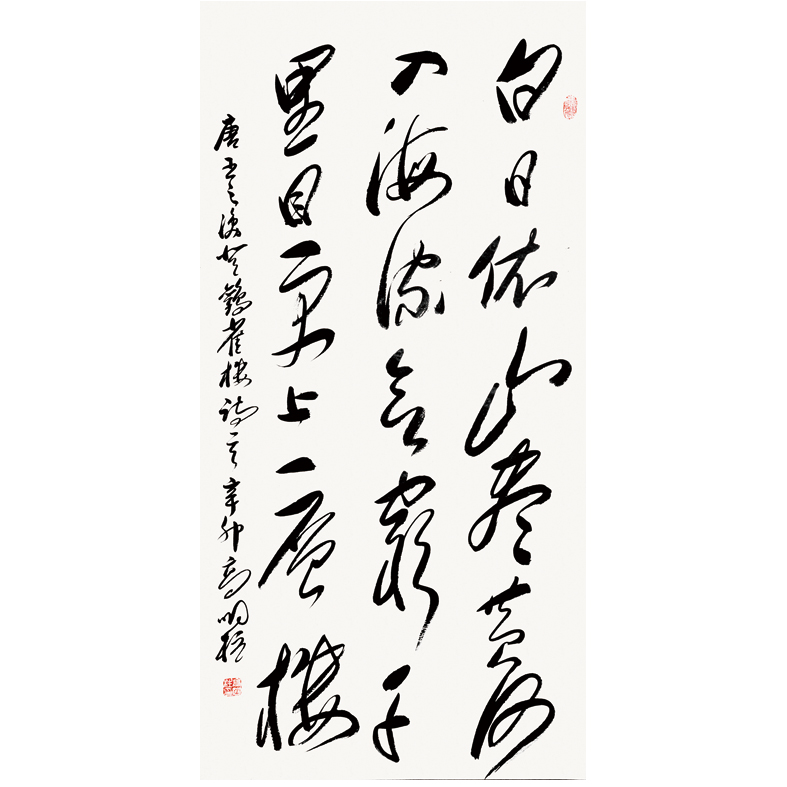 白日依山尽黄河
入海流欲穷千
里目更上一层楼
唐王之涣登鹳雀楼诗一首辛卯高明柱